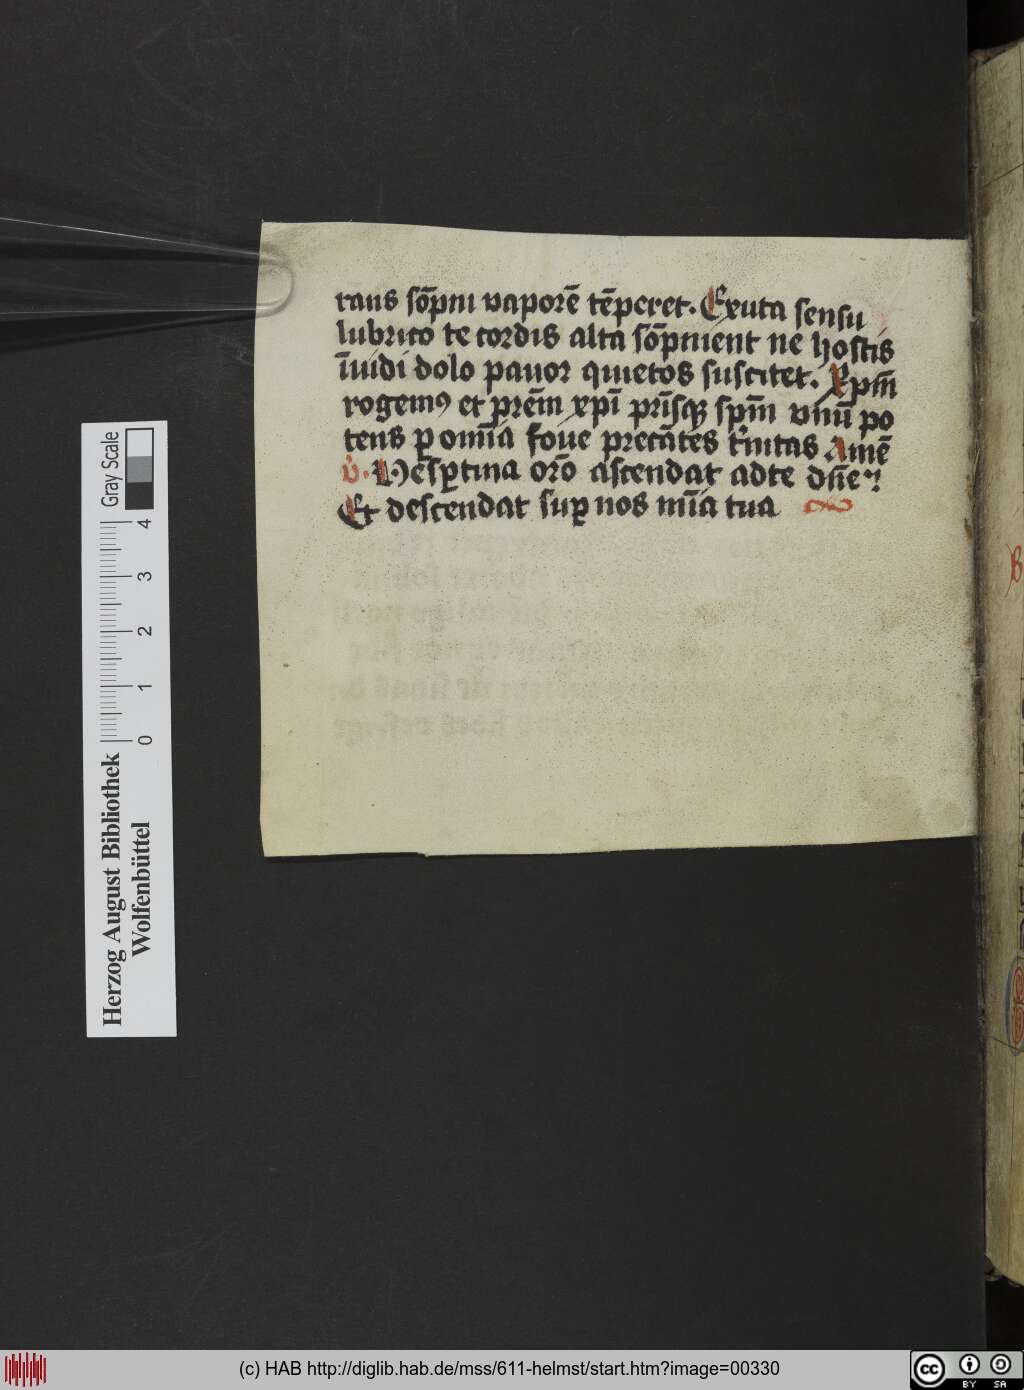 rans sōpni vaporē tēperet. Exuta sensu
lubrico te cordis alta sōpnient ne hostis
īuidi dolo pauor quietos suscitet. Xp̄m
rogemꝰ et pr̄em xpī pr̄isqꝫ spm̄ vnū po
tens ꝑ om̄ia foue precātes trinitas Amē
v̇. Vesꝑtina or̄o ascendat adte dn̄e
Et descendat suꝑ nos mīa tua
Gray Scale
0 1 2 3 4
Herzog August Bibliothek
Wolfenbüttel
B
(c) HAB http://diglib.hab.de/mss/611-helmst/start.htm?image=00330
cc BY SA